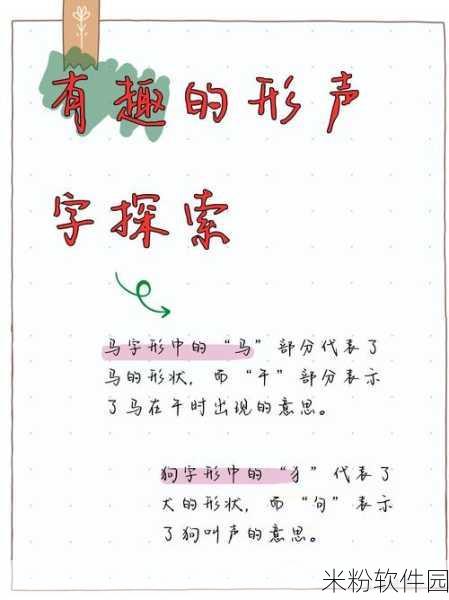 有趣的形声
字探索
马字形中的“马”部分代表了
马的形状，而“午”部分表示
了马在午时出现的意思。
狗字形中的“犭”代表了
犬的形状，而“句”表示
了狗叫声的意思。
米粉软件园